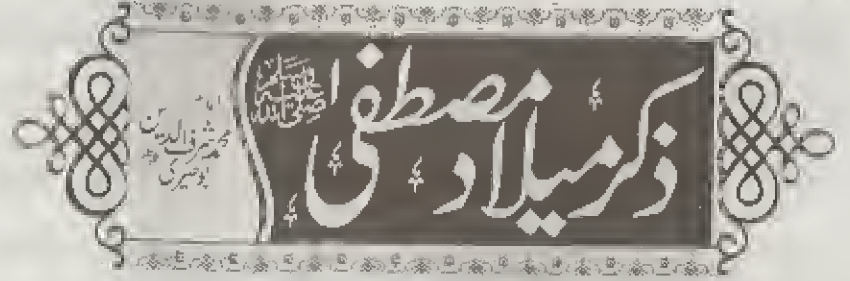 ذکر میلاد مصطفی ﷺ
امام
محمد شرف الدین
بوصیری